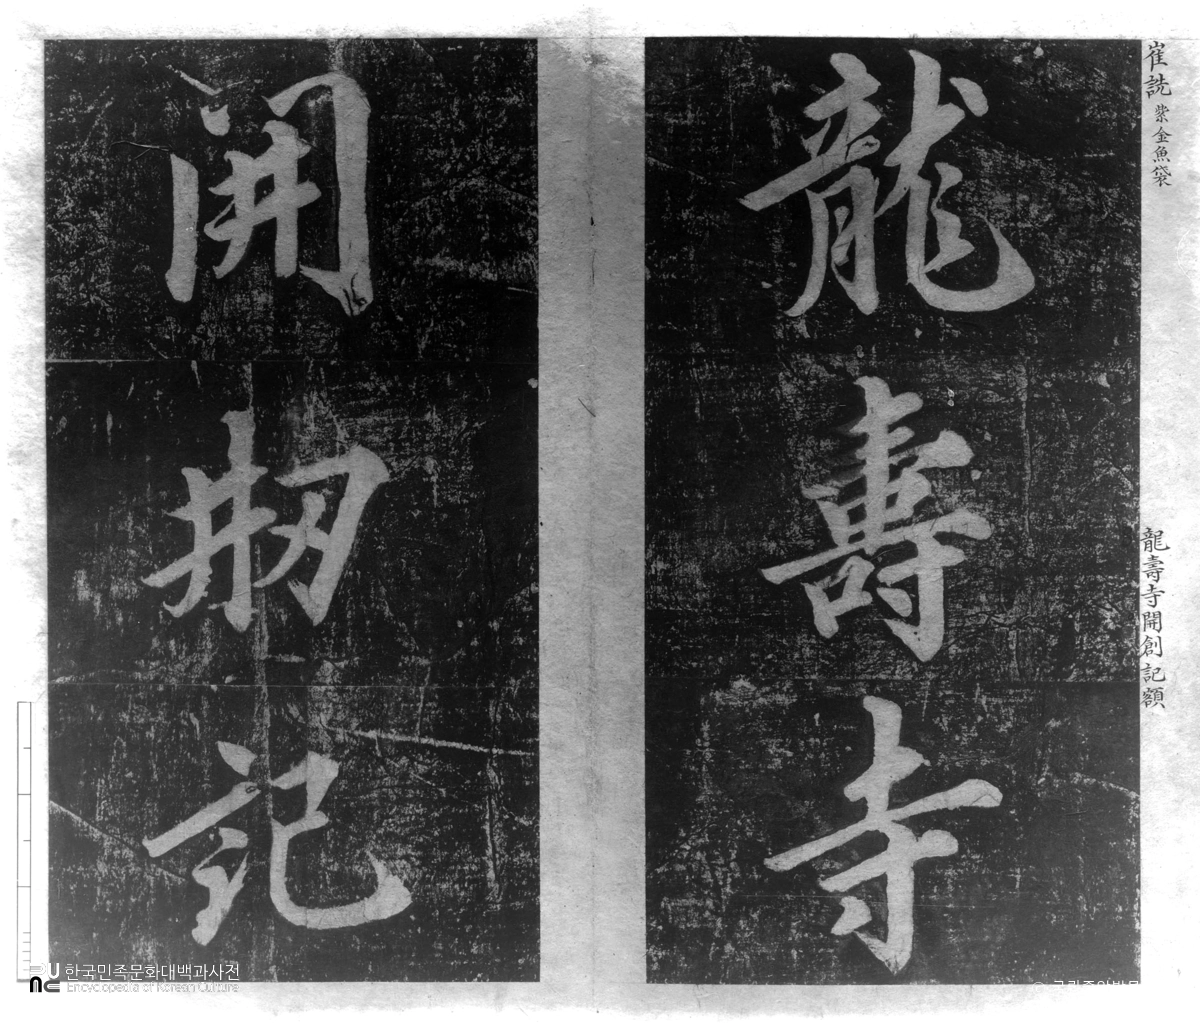 崔詵 紫金魚袋
龍壽寺開創記額
龍壽寺
開刱記
한국민족문화대백과사전
Encyclopedia of Korean Culture